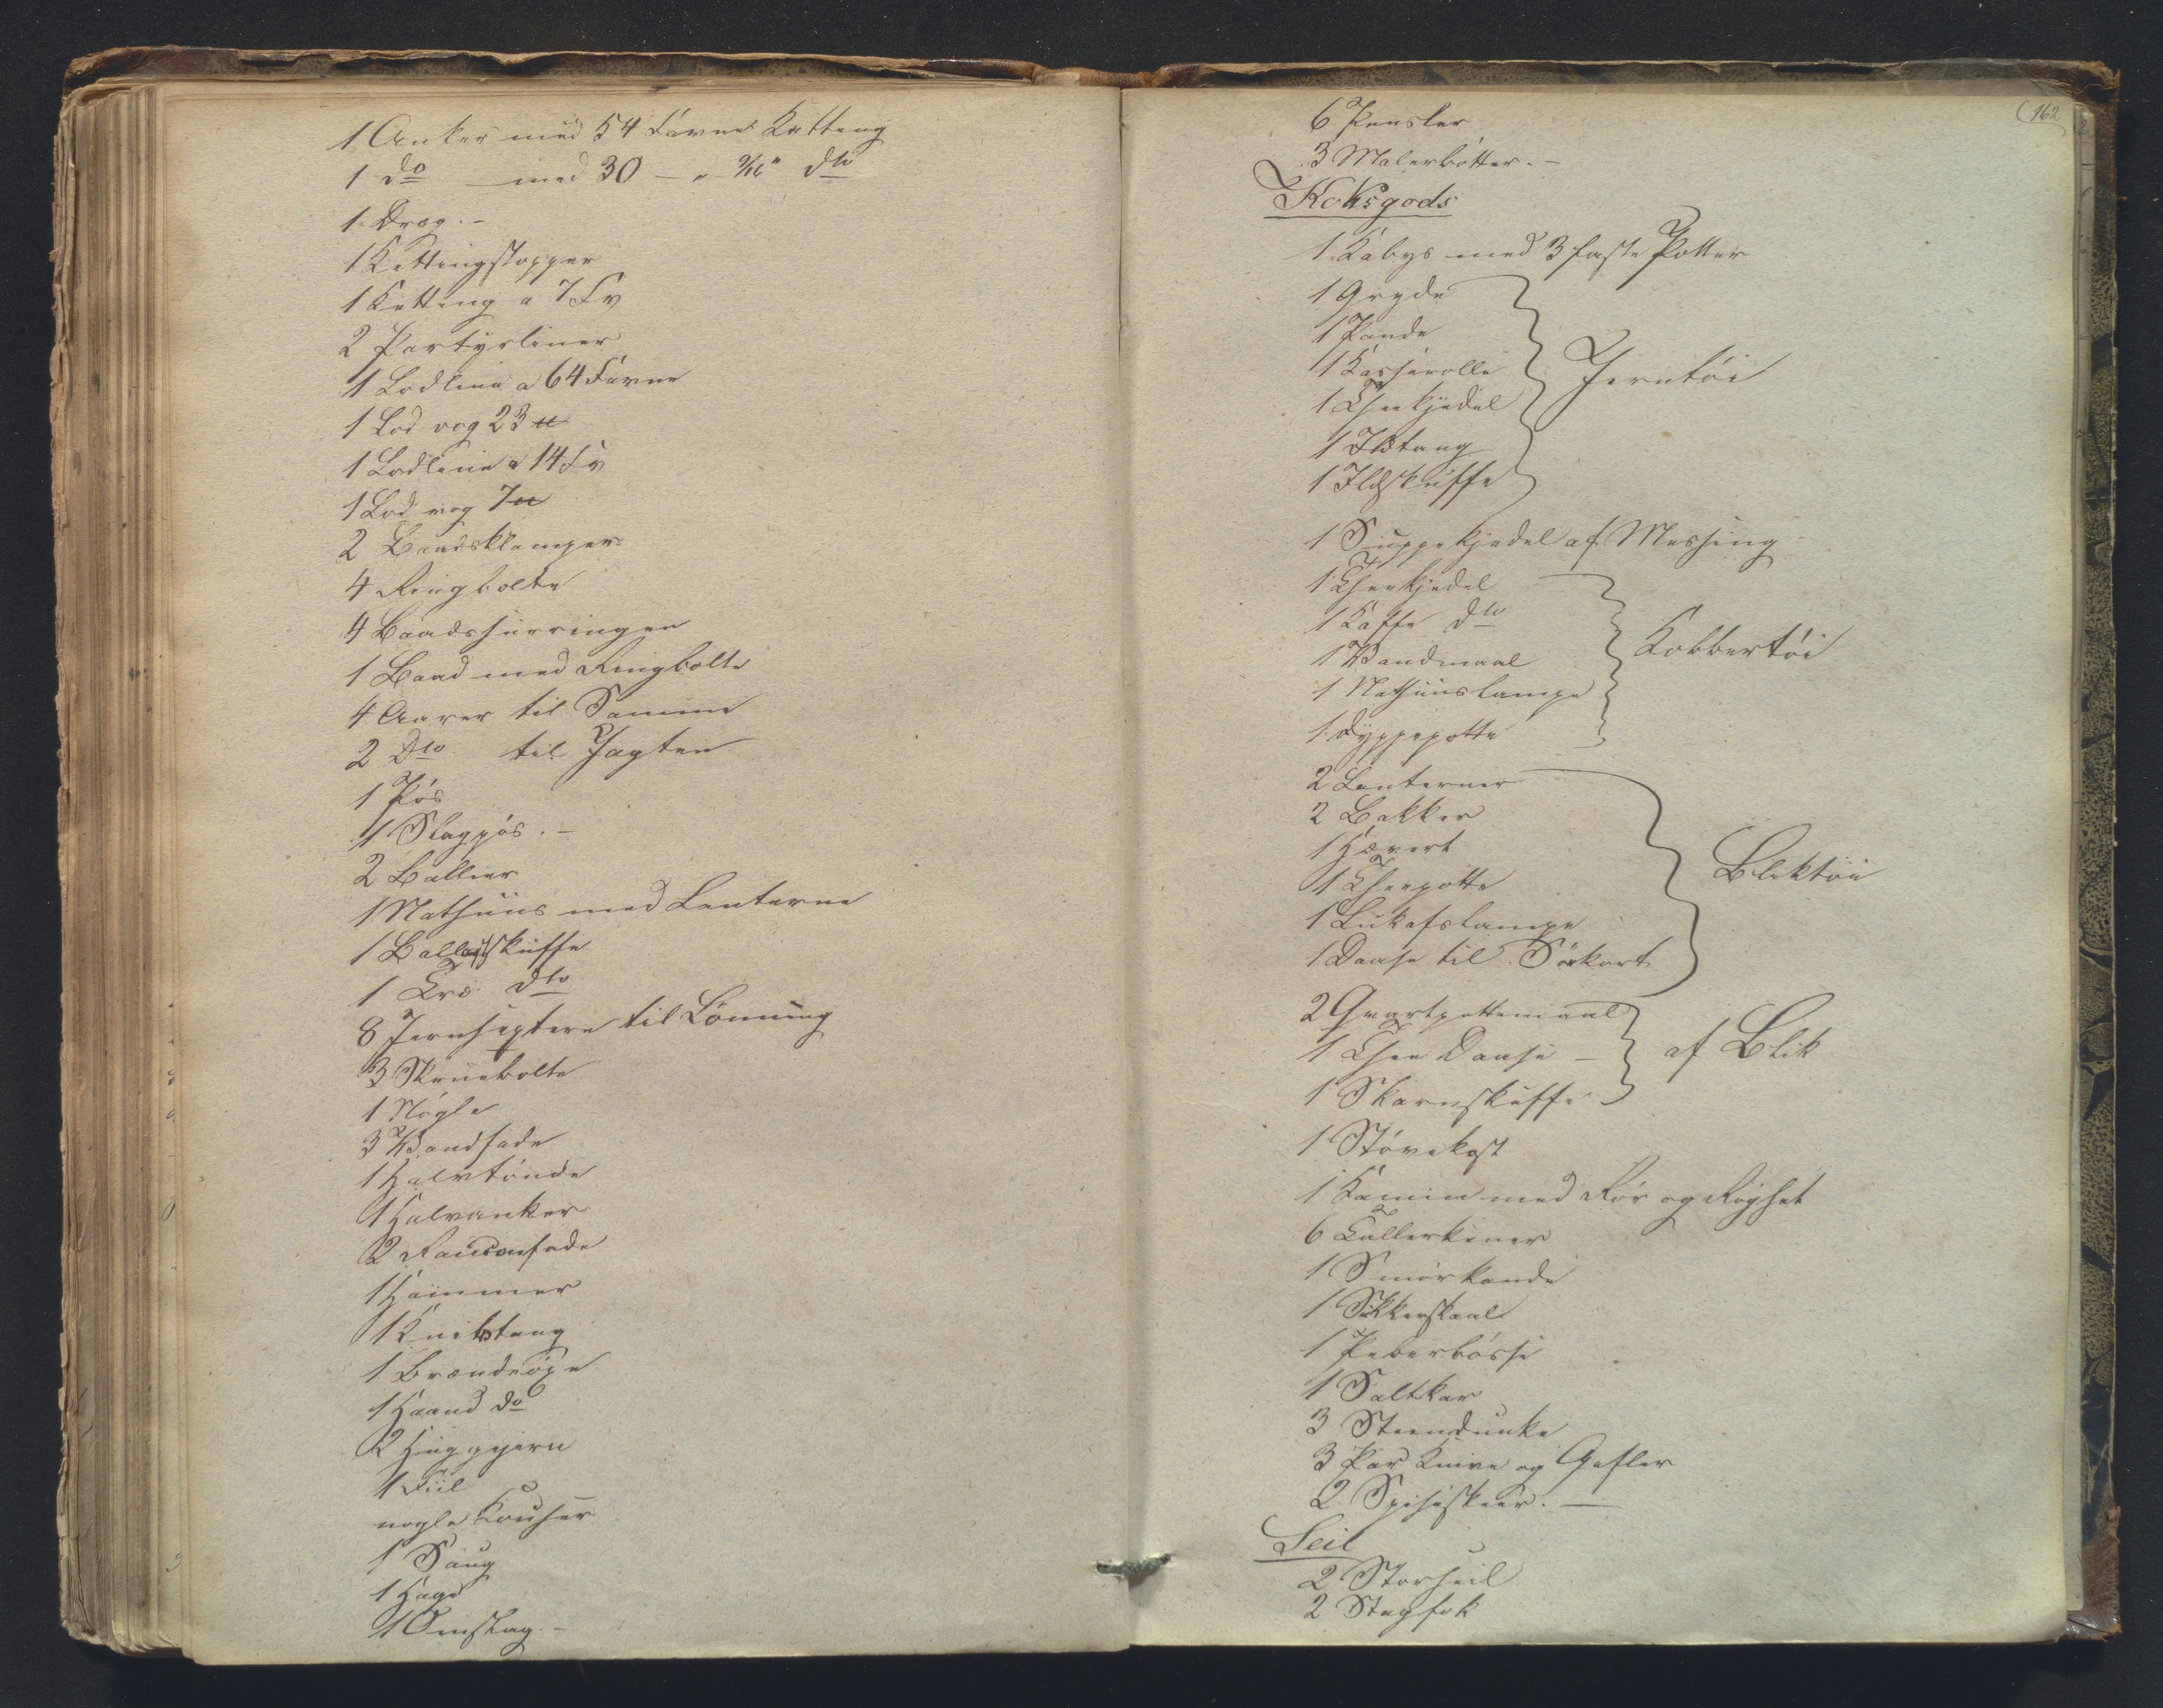 1 Anker med 54 Favne Ketting
1 do med 30 — " 9/16" dto
1 Dræg. –
1 Kettingstopper
1 Ketting a 7 Fv
2 Partyrliner
1 Lodline a 64 Favne
1 Lod vog 23 ℔
1 Lodline a 14 Fv
1 Lod vog 7 ℔
2 Baadsklamper
4 Ringbolte
4 Baadssurringer
1 Baad med Ringbolte
4 Aarer til Samme
2 Dto til Jagten
1 Pös
1 Slagpös. –
2 Ballier
1 Nathuus med Lanterne
1 Ballastskuffe
1 Træ dto
8 Jernseptere til Lönning
3 Skruebolte
1 Nögle
3 Vandfade
1 Halvtönde
1 Halvanker
2 Fade
1 Hammer
1 Knibtang
1 Brændeöxe
1 Haand do
2 Huggjern
1 Fiil
nogle Kouser
1 Saug
1 Hage
1 Omslag. –
162
6 Pensler
3 Malerbötter. –
Koksgods
1 Kabys med 3 faste Potter
1 Gryde
1 Pande
1 Kasserolle
1 Theekjedel
1 Ildtang
1 Ildskuffe
Jerntöi
1 Suppekjedel af Messing
1 Theekjedel
1 Kaffe dto
1 Vandmaal
1 Nathuuslampe
1 Dyppepotte
Kobbertöi
2 Lanterner
2 Bakker
1 Hævert
1 Theepotte
1 Lukafslampe
1 Daase til Sökort
Bliktöi
2 Qvartpottemaal
1 Thee Daase –
1 Skarnskuffe
af Blik
1 Stövekost
1 Kamin med Rör og Röghat
6 Tallerkener
1 Smörkande
1 Sukkerskaal
1 Peberbösse
1 Saltkar
3 Steendunke
3 Par Knive og Gafler
2 Spiseskeer. —
Seil
2 Storseil
2 Stagfok